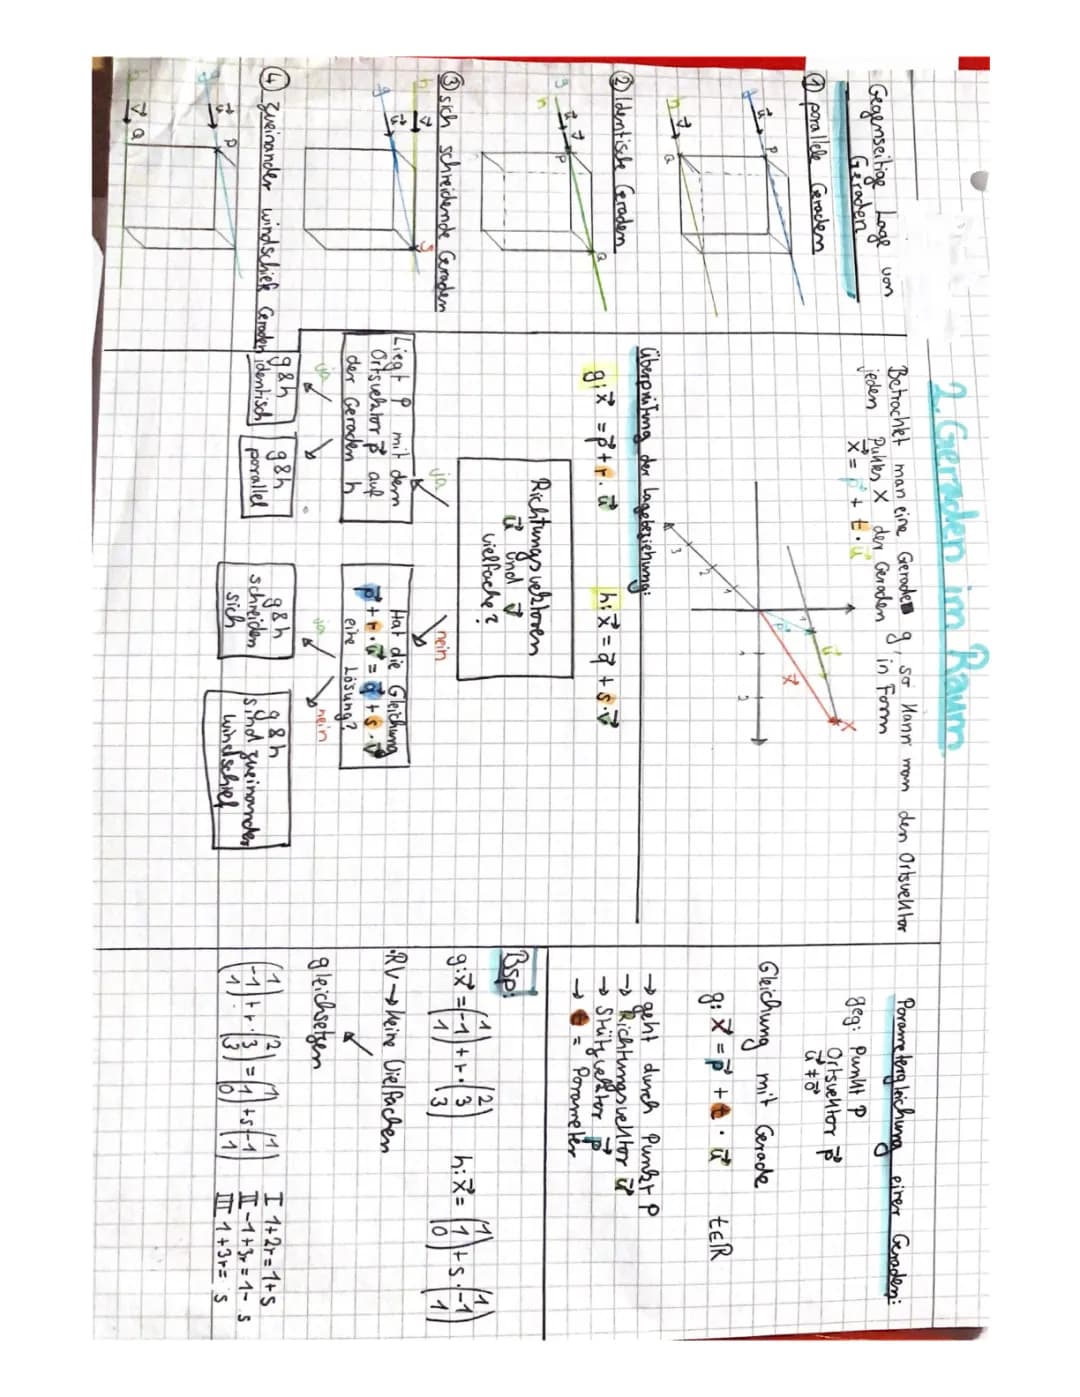 2. Geraden im Raum
Gegenseitige Lage von
Geraden
① parallele Geraden
g
u
P
h
v
Q
② Identische Geraden
g
h
u
v
P
Q
③ sich schneidende Geraden
h
v
g
u
S
④ zueinander windschiefe Geraden
g
u
P
h
v
Q
Betrachtet man eine Gerade g, so kann man den Ortsvektor
jeden Punktes X der Geraden in Form
x⃗ = p⃗ + t · u⃗
1
2
3
1
2
1
p⃗
u⃗
x⃗
X
Überprüfung der Lagebeziehung:
g: x⃗ = p⃗ + r · u⃗    h: x⃗ = q⃗ + s · v⃗
Richtungsvektoren
u⃗ und v⃗
vielfache?
ja
nein
Liegt P mit dem
Ortsvektor p⃗ auf
der Geraden h
Hat die Gleichung
p⃗ + r · u⃗ = q⃗ + s · v⃗
eine Lösung?
ja
ja
nein
g & h
identisch
g & h
parallel
g & h
schneiden
sich
g & h
sind zueinander
windschief
Parametergleichung einer Geraden:
geg: Punkt P
Ortsvektor p⃗
u⃗ ≠ 0⃗
Gleichung mit Gerade
g: x⃗ = p⃗ + t · u⃗    t∈ℝ
→ geht durch Punkt P
→ Richtungsvektor u⃗
→ Stützvektor p⃗
→ t = Parameter
Bsp:
g: x⃗ = (1 -1 1) + r · (2 3 3)    h: x⃗ = (1 1 0) + s · (1 -1 1)
· RV → keine Vielfachen
gleichsetzen
(1 -1 1) + r · (2 3 3) = (1 1 0) + s (1 -1 1)
I 1+2r = 1+s
II -1+3r = 1- s
III 1+3r = s